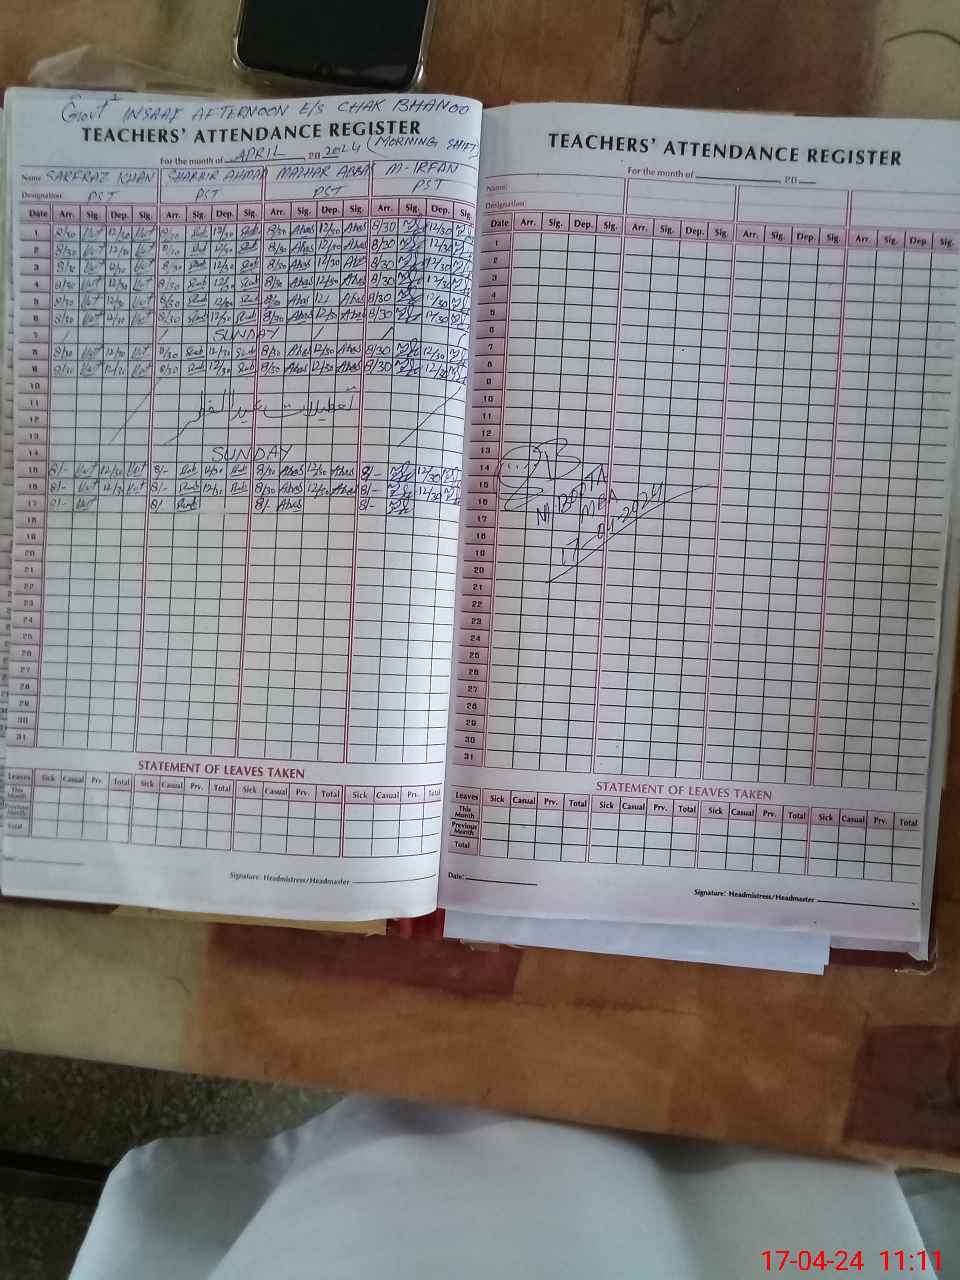 Govt INSAAF AFTERNOON E/S CHAK BHANOO
TEACHERS' ATTENDANCE REGISTER
For the month of APRIL 20 2024 (MORNING SHIFT)
Name SARFRAZ KHAN SHABBIR AHMAD MAZHAR ABBAS M. IRFAN
Designation PST PST PST PST
Date Arr. Sig. Dep. Sig. Arr. Sig. Dep. Sig. Arr. Sig. Dep. Sig. Arr. Sig. Dep. Sig.
1 8/30 12/30 8/30 12/30 8/30 Abas 12/30 Abas 8/30 12/30
2 8/30 12/30 8/30 12/30 8/30 Abas 12/30 Abas 8/30 12/30
3 8/30 12/30 8/30 12/30 8/30 Abas 12/30 8/30 12/30
4 8/30 12/30 8/30 12/30 8/30 Abas 12/30 Abas 8/30 12/30
5 8/30 12/30 8/30 12/30 Abas Abas 8/30 12/30
6 8/30 12/30 8/30 12/30 8/30 Abas 12/30 Abas 8/30 12/30
7 SUNDAY
8 8/30 12/30 8/30 12/30 8/30 Abas 12/30 Abas 8/30 12/30
9 8/30 12/30 8/30 12/30 8/30 Abas 12/30 Abas 8/30 12/30
10
11 تعطیلات عید الفطر
12
13
14 SUNDAY
15 8/- 12/30 8/- 12/30 8/30 Abas 12/30 Abas 8/- 12/30
16 8/- 12/30 8/- 12/30 8/30 Abas 12/30 Abas 8/- 12/30
17 8/- 8/- 8/- Abas 8/-
18
19
20
21
22
23
24
25
26
27
28
29
30
31
STATEMENT OF LEAVES TAKEN
Leaves Sick Casual Prv. Total Sick Casual Prv. Total Sick Casual Prv. Total Sick Casual Prv. Total
This Month
Previous Month
Total
Signature: Headmistress/Headmaster
TEACHERS' ATTENDANCE REGISTER
For the month of 20
Name:
Designation:
Date Arr. Sig. Dep. Sig. Arr. Sig. Dep. Sig. Arr. Sig. Dep. Sig. Arr Sig. Dep Sig.
1
2
3
4
5
6
7
8
9
10
11
12
13
14
15
16
17
18
19
20
21
22
23
24
25
26
27
28
29
30
31
M BOOTA
MEA
17-04-2024
STATEMENT OF LEAVES TAKEN
Leaves Sick Casual Prv. Total Sick Casual Prv. Total Sick Casual Prv. Total Sick Casual Prv. Total
This Month
Previous Month
Total
Date:
Signature: Headmistress/Headmaster
17-04-24 11:11